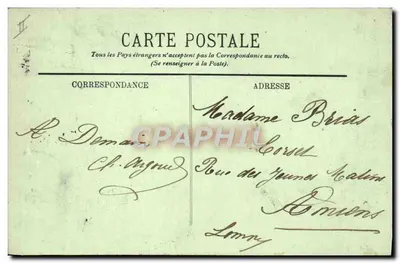 CARTE POSTALE
Tous les Pays étrangers n'acceptent pas la Correspondance au recto.
(Se renseigner à la Poste).
CORRESPONDANCE
ADRESSE
A Demain
Madame Brias
Corset
Rue des Jeunes Matins
Amiens
Somme